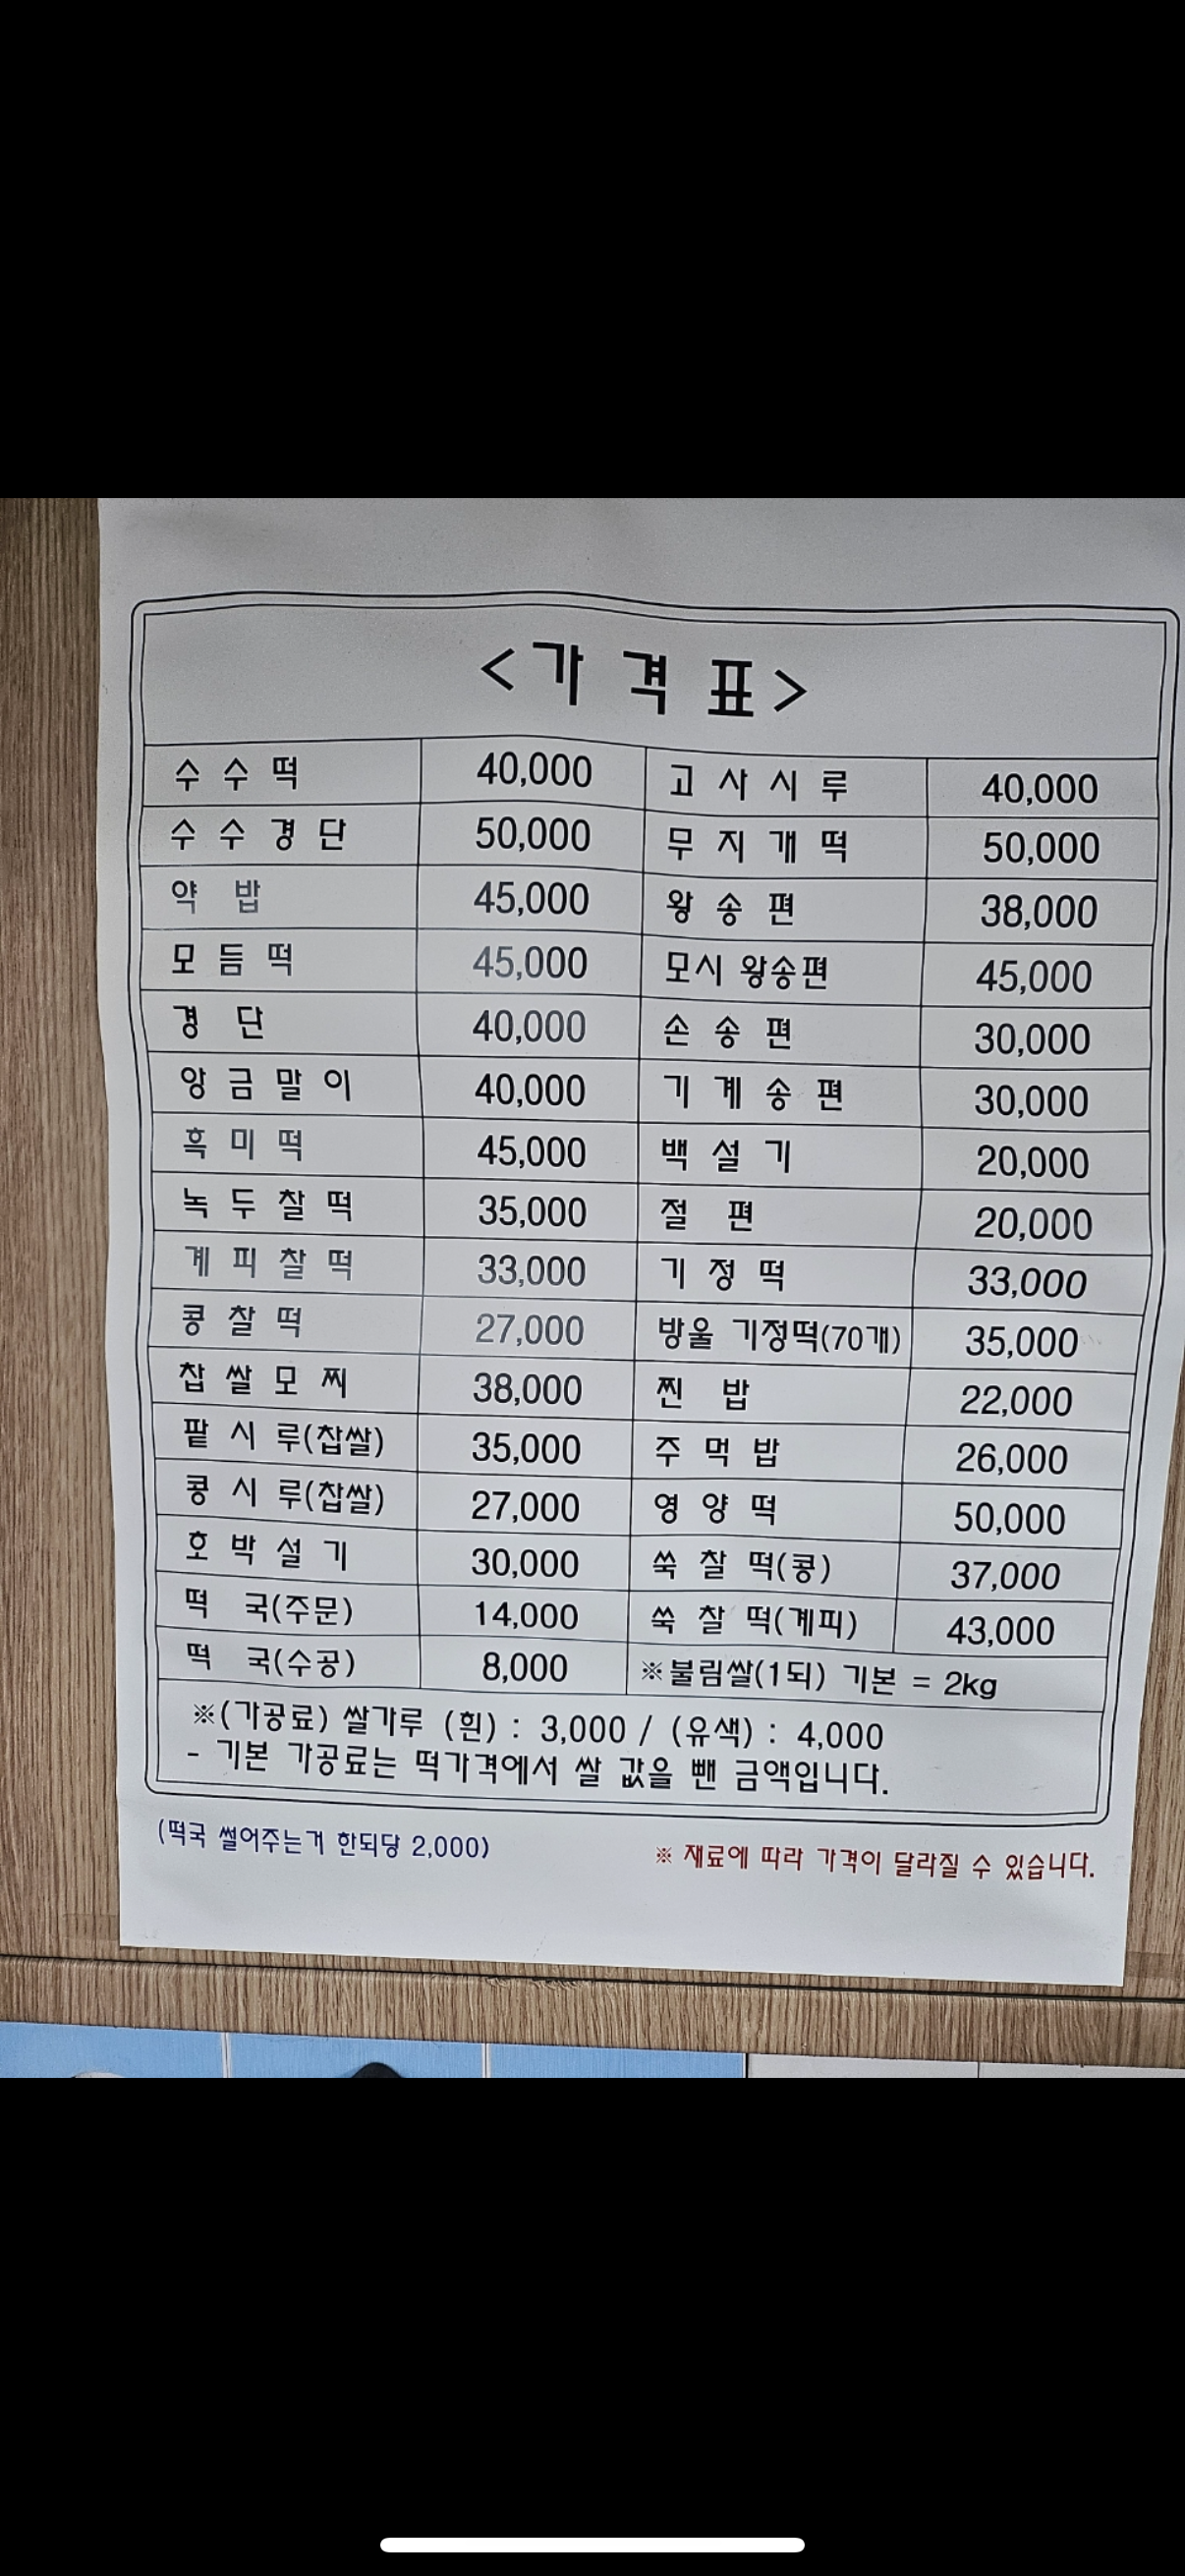 <가 격 표>
수 수 떡 40,000 고 사 시 루 40,000
수 수 경 단 50,000 무 지 개 떡 50,000
약 밥 45,000 왕 송 편 38,000
모 듬 떡 45,000 모시 왕송편 45,000
경 단 40,000 손 송 편 30,000
앙 금 말 이 40,000 기 계 송 편 30,000
흑 미 떡 45,000 백 설 기 20,000
녹 두 찰 떡 35,000 절 편 20,000
계 피 찰 떡 33,000 기 정 떡 33,000
콩 찰 떡 27,000 방울 기정떡(70개) 35,000
찹 쌀 모 찌 38,000 찐 밥 22,000
팥 시 루(찹쌀) 35,000 주 먹 밥 26,000
콩 시 루(찹쌀) 27,000 영 양 떡 50,000
호 박 설 기 30,000 쑥 찰 떡(콩) 37,000
떡 국(주문) 14,000 쑥 찰 떡(계피) 43,000
떡 국(수공) 8,000 ※불림쌀(1되) 기본 = 2kg
※(가공료) 쌀가루 (흰) : 3,000 / (유색) : 4,000
- 기본 가공료는 떡가격에서 쌀 값을 뺀 금액입니다.
(떡국 썰어주는거 한되당 2,000)
※ 재료에 따라 가격이 달라질 수 있습니다.